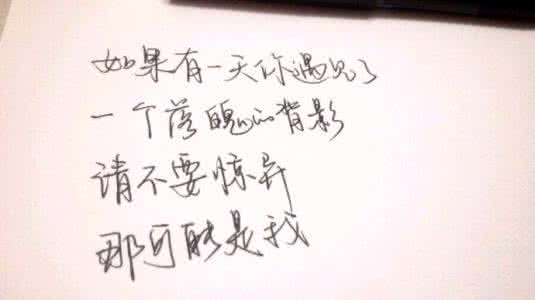 如果有一天你遇见了
一个落魄的背影
请不要惊异
那可能是我